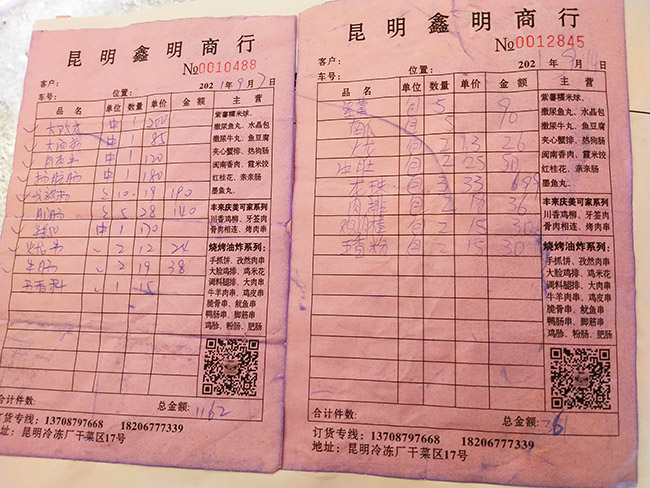 昆明鑫明商行
№0010488
客户:
车号: 位置: 2021年9月7日
品名 单位 数量 单价 金额 主营
紫薯糯米球、
撒尿鱼丸、水晶包
撒尿牛丸、鱼豆腐
夹心蟹排、热狗肠
闽南香肉、霞米饺
红桂花、亲亲肠
墨鱼丸。
丰来庆美可家系列
川香鸡柳、牙签肉
骨肉相连、烤肉串
烧烤油炸系列:
手抓饼、孜然肉串
大脸鸡排、鸡米花
调料腿排、大肉串
牛羊肉串、鸡皮串
脆骨串、鱿鱼串
鸭肠串、脚筋串
鸡胗、粉肠、肥肠
件 1 200
件 1 85
件 1 120
件 1 180
10 19 190
5 28 140
件 1 170
2 12 24
2 19 38
1 15
合计件数: 总金额: 1162
订货专线: 13708797668 18206777339
地址: 昆明冷冻厂干菜区17号
昆明鑫明商行
№0012845
客户:
车号: 位置: 202 年9月14日
品名 单位 数量 单价 金额 主营
紫薯糯米球、
撒尿鱼丸、水晶包
撒尿牛丸、鱼豆腐
夹心蟹排、热狗肠
闽南香肉、霞米饺
红桂花、亲亲肠
墨鱼丸。
丰来庆美可家系列
川香鸡柳、牙签肉
骨肉相连、烤肉串
烧烤油炸系列:
手抓饼、孜然肉串
大脸鸡排、鸡米花
调料腿排、大肉串
牛羊肉串、鸡皮串
脆骨串、鱿鱼串
鸭肠串、脚筋串
鸡胗、粉肠、肥肠
5 90
5
2 13 26
2 25 50
3 33
肉排 2 18 36
2 15 30
2 15 30
合计件数: 总金额:
订货专线: 13708797668 18206777339
地址: 昆明冷冻厂干菜区17号